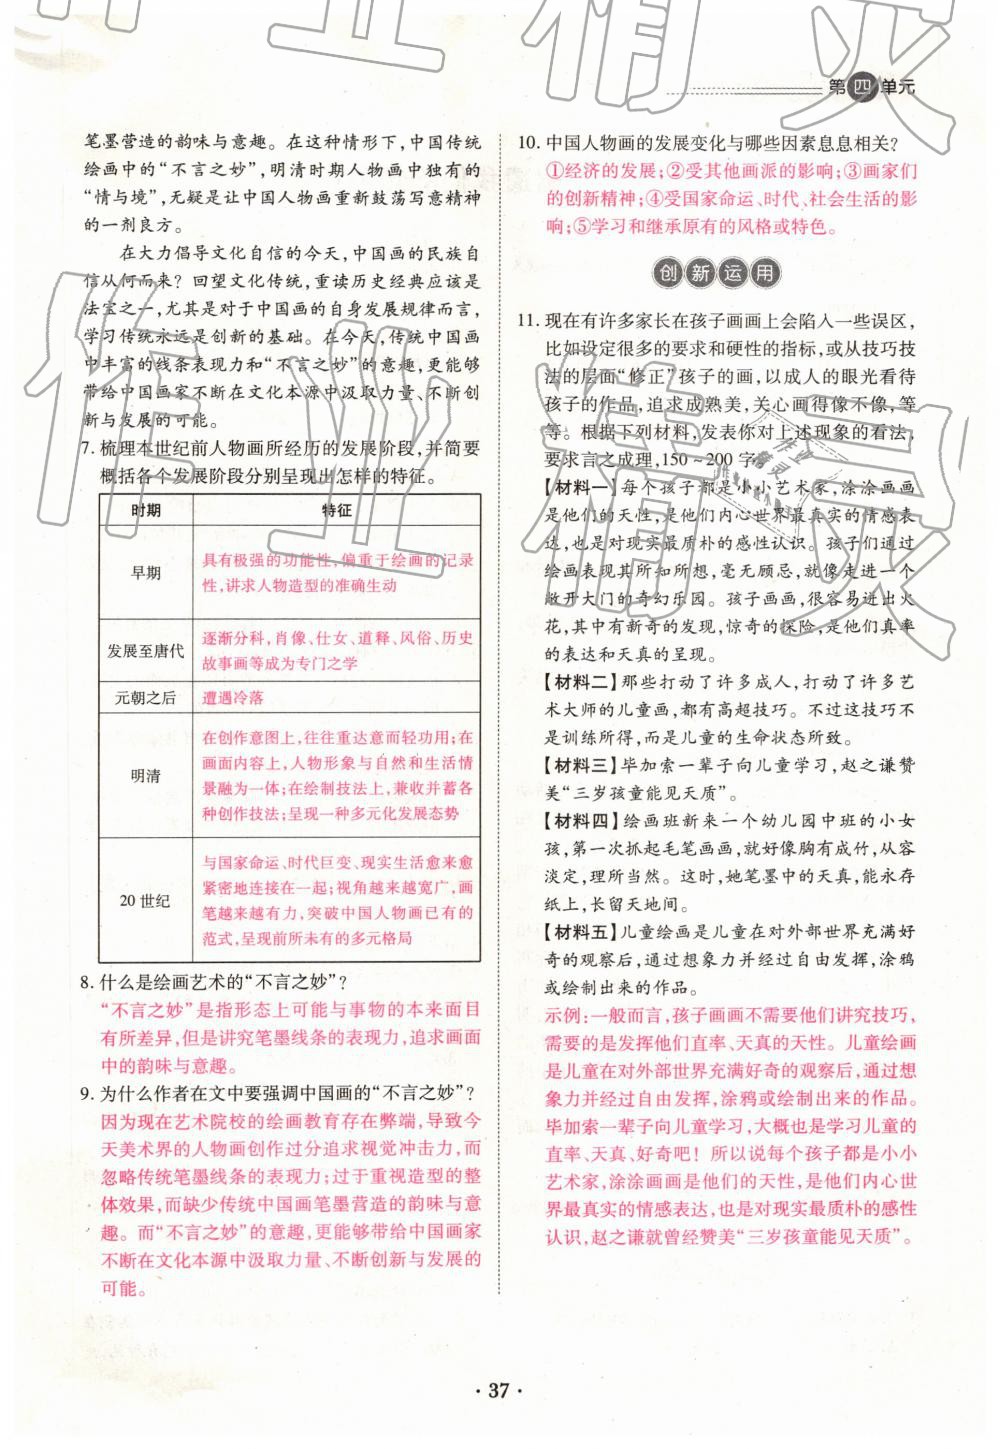 第四单元
笔墨营造的韵味与意趣。在这种情形下,中国传统
绘画中的“不言之妙”,明清时期人物画中独有的
“情与境”,无疑是让中国人物画重新鼓荡写意精神
的一剂良方。
在大力倡导文化自信的今天,中国画的民族自
信从何而来？回望文化传统,重读历史经典应该是
法宝之一,尤其是对于中国画的自身发展规律而言,
学习传统永远是创新的基础。在今天,传统中国画
中丰富的线条表现力和“不言之妙”的意趣,更能够
带给中国画家不断在文化本源中汲取力量、不断创
新与发展的可能。
7. 梳理本世纪前人物画所经历的发展阶段,并简要
概括各个发展阶段分别呈现出怎样的特征。
时期 特征
早期
具有极强的功能性,偏重于绘画的记录
性,讲求人物造型的准确生动
发展至唐代
逐渐分科,肖像、仕女、道释、风俗、历史
故事画等成为专门之学
元朝之后 遭遇冷落
明清
在创作意图上,往往重达意而轻功用;在
画面内容上,人物形象与自然和生活情
景融为一体;在绘制技法上,兼收并蓄各
种创作技法;呈现一种多元化发展态势
20 世纪
与国家命运、时代巨变、现实生活愈来愈
紧密地连接在一起;视角越来越宽广,画
笔越来越有力,突破中国人物画已有的
范式,呈现前所未有的多元格局
8. 什么是绘画艺术的“不言之妙”？
“不言之妙”是指形态上可能与事物的本来面目
有所差异,但是讲究笔墨线条的表现力,追求画面
中的韵味与意趣。
9. 为什么作者在文中要强调中国画的“不言之妙”？
因为现在艺术院校的绘画教育存在弊端,导致今
天美术界的人物画创作过分追求视觉冲击力,而
忽略传统笔墨线条的表现力;过于重视造型的整
体效果,而缺少传统中国画笔墨营造的韵味与意
趣。而“不言之妙”的意趣,更能够带给中国画家
不断在文化本源中汲取力量、不断创新与发展的
可能。
10. 中国人物画的发展变化与哪些因素息息相关？
①经济的发展;②受其他画派的影响;③画家们
的创新精神;④受国家命运、时代、社会生活的影
响;⑤学习和继承原有的风格或特色。
创新运用
11. 现在有许多家长在孩子画画上会陷入一些误区,
比如设定很多的要求和硬性的指标,或从技巧技
法的层面“修正”孩子的画,以成人的眼光看待
孩子的作品,追求成熟美,关心画得像不像,等
等。根据下列材料,发表你对上述现象的看法,
要求言之成理,150～200 字。
【材料一】每个孩子都是小小艺术家,涂涂画画
是他们的天性,是他们内心世界最真实的情感表
达,也是对现实最质朴的感性认识。孩子们通过
绘画表现其所知所想,毫无顾忌,就像走进一个
敞开大门的奇幻乐园。孩子画画,很容易迸出火
花,其中有新奇的发现,惊奇的探险,是他们真率
的表达和天真的呈现。
【材料二】那些打动了许多成人,打动了许多艺
术大师的儿童画,都有高超技巧。不过这技巧不
是训练所得,而是儿童的生命状态所致。
【材料三】毕加索一辈子向儿童学习,赵之谦赞
美“三岁孩童能见天质”。
【材料四】绘画班新来一个幼儿园中班的小女
孩,第一次抓起毛笔画画,就好像胸有成竹,从容
淡定,理所当然。这时,她笔墨中的天真,能永存
纸上,长留天地间。
【材料五】儿童绘画是儿童在对外部世界充满好
奇的观察后,通过想象力并经过自由发挥,涂鸦
或绘制出来的作品。
示例:一般而言,孩子画画不需要他们讲究技巧,
需要的是发挥他们直率、天真的天性。儿童绘画
是儿童在对外部世界充满好奇的观察后,通过想
象力并经过自由发挥,涂鸦或绘制出来的作品。
毕加索一辈子向儿童学习,大概也是学习儿童的
直率、天真、好奇吧！所以说每个孩子都是小小
艺术家,涂涂画画是他们的天性,是他们内心世
界最真实的情感表达,也是对现实最质朴的感性
认识,赵之谦就曾经赞美“三岁孩童能见天质”。
· 37 ·
作业精灵
作业精灵
作业精灵